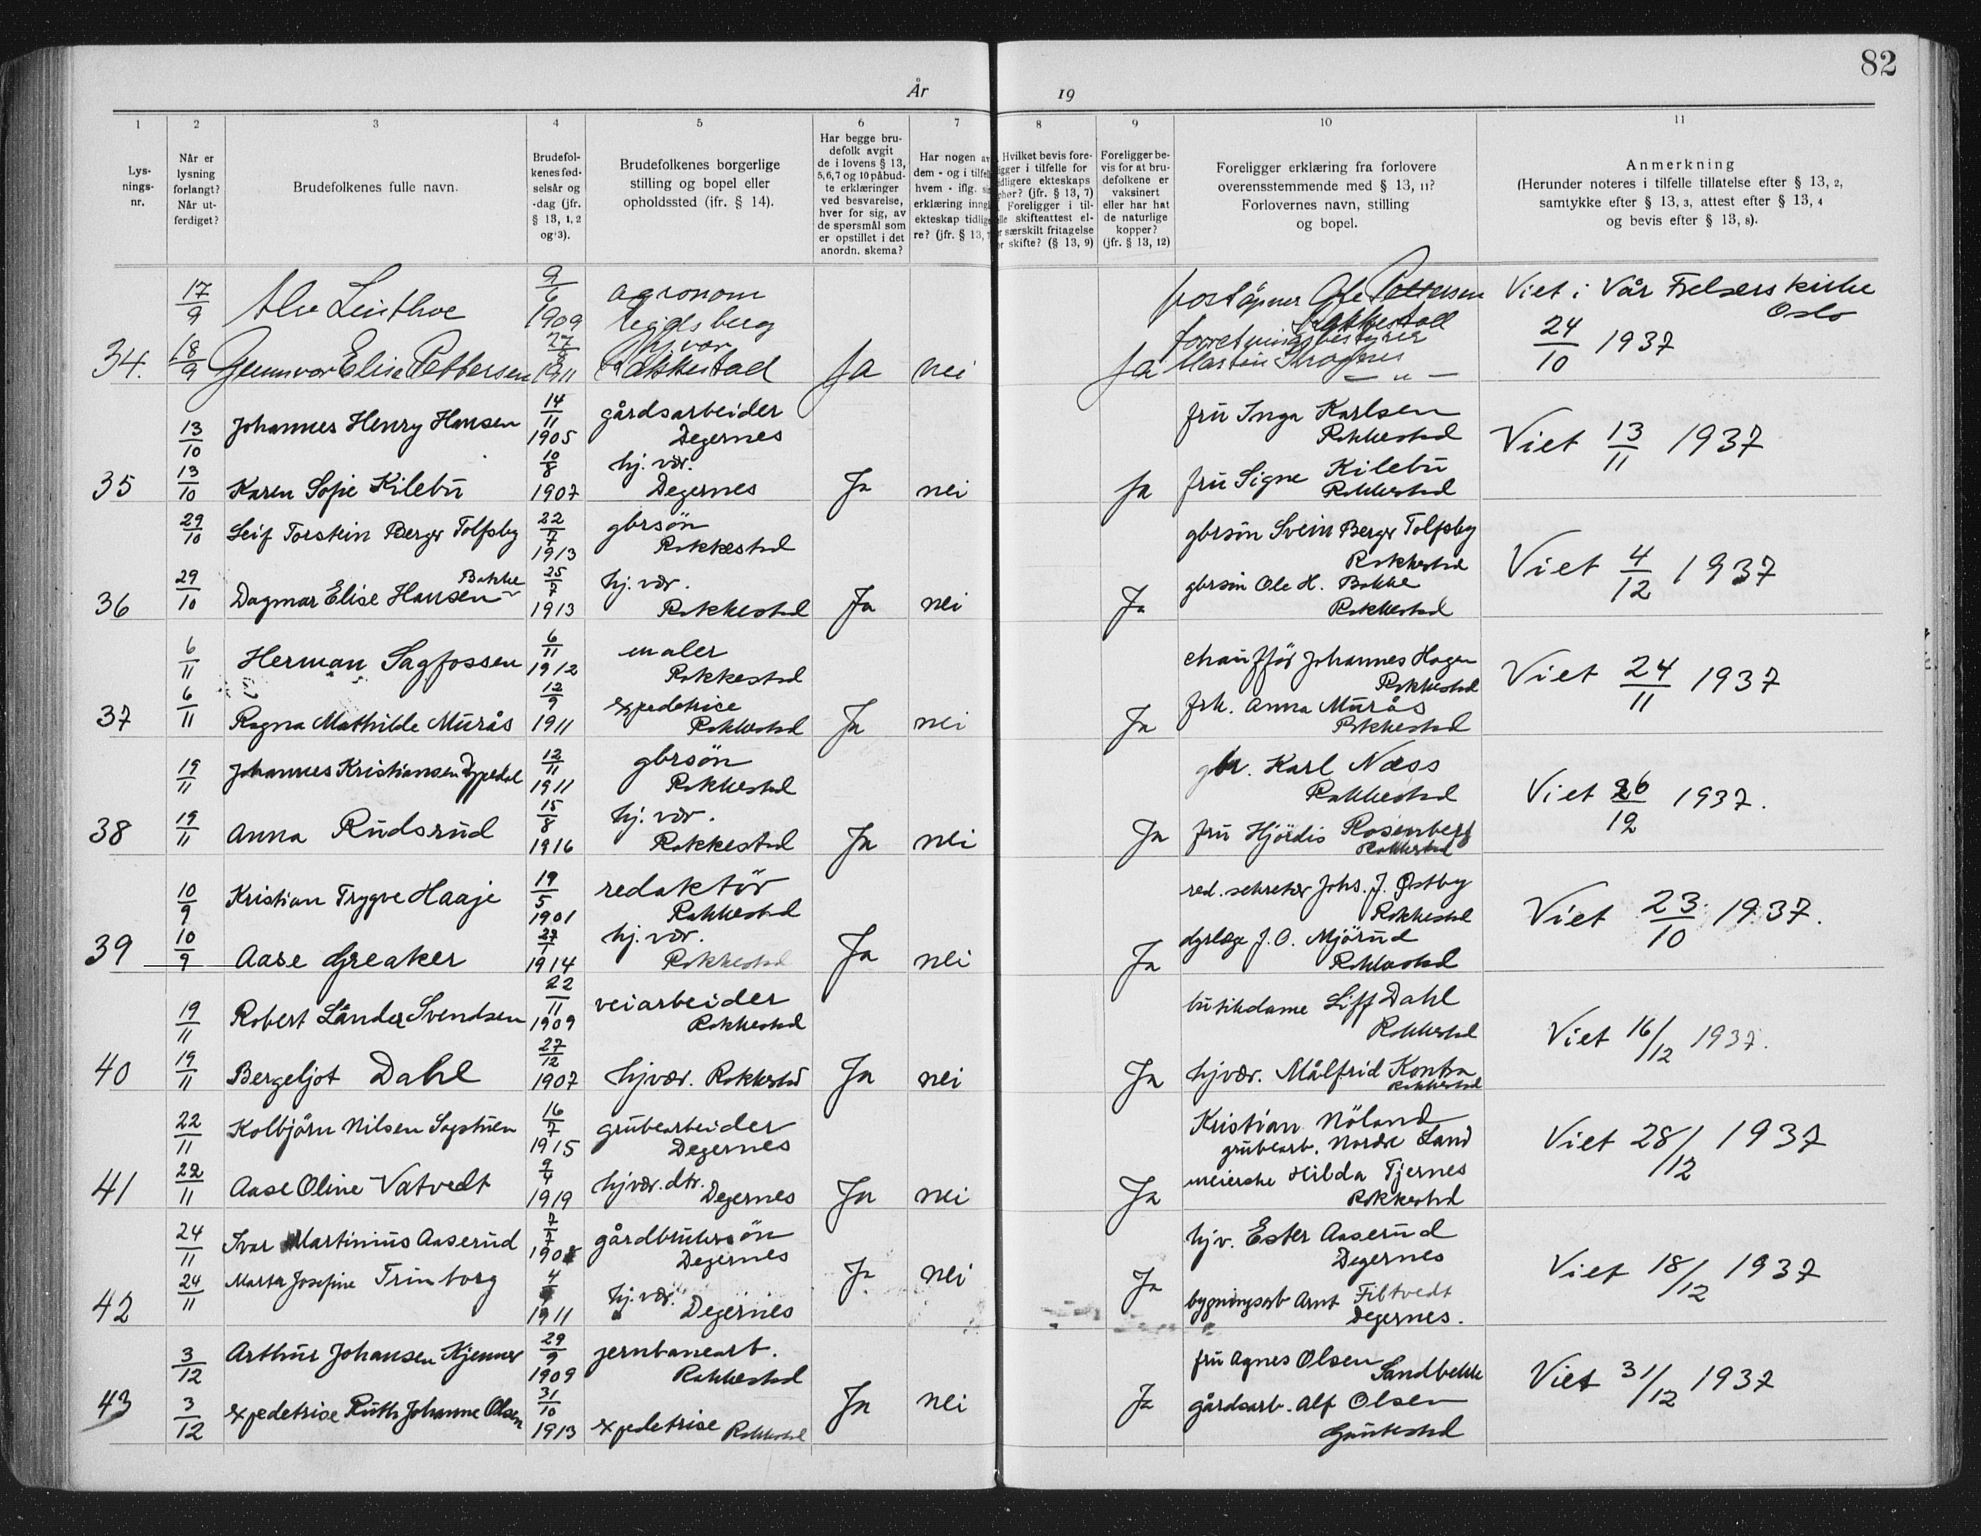 82
År 19
1 2 3 4 5 6 7 8 9 10 11
Lys-
nings-
nr.
Når er
lysning
forlangt?
Når ut-
ferdiget?
Brudefolkenes fulle navn.
Brudefol-
kenes fød-
selsår og
-dag (jfr.
§ 13, 1, 2
og 3).
Brudefolkenes borgerlige
stilling og bopel eller
opholdssted (ifr. § 14).
Har begge bru-
defolk avgit
de i lovens § 13,
5,6,7 og 10 påbud-
te erklæringer
ved besvarelse,
hver for sig, av
de spørsmål som
er opstillet i det
anordn. skema?
Har nogen av
dem - og i tilfel
hvem - iflg. si
erklæring inngå
ekteskap tidlige
re? (jfr. § 13,
Hvilket bevis fore-
ligger i tilfelle for
tidligere ekteskaps
ophør? (jfr. § 13, 7)
Foreligger i til-
felle skifteattest el-
r særskilt fritagelse
or skifte? (§ 13, 9)
Foreligger be-
vis for at bru-
defolkene er
vaksinert
eller har hat
de naturlige
kopper?
(jfr. § 13, 12)
Foreligger erklæring fra forlovere
overensstemmende med § 13, 11?
Forlovernes navn, stilling
og bopel.
Anmerkning
(Herunder noteres i tilfelle tillatelse efter § 13, 2,
samtykke efter § 13, 3, attest efter § 13, 4
og bevis efter § 13, 8).
17/9 Alv 9/6 1909 agronom poståpner Ole Pettersen Viet i Vår Frelsers kirke
Rakkestad Oslo
34. 18/9 Gunnvor Elise Pettersen 1911 hj.vær Rakkestad Ja nei Ja forretningsbestyrer — " — 24/10 1937
13/10 Johannes Henry Hansen 14/11 1905 gårdsarbeider Degernes fru Inga Karlsen Rakkestad Viet 13/11 1937
35 13/10 Karen Sofie Kilebu 10/8 1907 hj. vær. Degernes Ja nei Ja fru Signe Kilebu Rakkestad
29/10 Leif Torstein Berger Tolfsby 22/7 1913 gbrsøn Rakkestad gbrsön Svein Berger Tolfsby Rakkestad Viet 4/12 1937
36 29/10 Dagmar Elise Hansen Bakke 25/7 1913 hj. vær. Rakkestad Ja nei Ja gbrsön Ole H. Bakke Rakkestad
6/11 Herman Sagfossen 6/11 1912 maler Rakkestad chauffør Johannes Hagen Rakkestad Viet 24/11 1937
37 6/11 Ragna Mathilde Murås 12/9 1911 expedetrise Rakkestad Ja nei Ja frk. Anna Murås Rakkestad
19/11 Johannes Kristiansen Dypedal 12/11 1911 gbrsøn Rakkestad gbr. Karl Næss Rakkestad Viet 26/12 1937.
38 19/11 Anna Rudsrud 15/8 1916 hj. vær. Rakkestad Ja nei Ja fru Hjördis Rosenberg Rakkestad
10/9 Kristian Trygve Haaje 19/5 1901 redaktör Rakkestad red. sekretær Johs. J. Østby Rakkestad Viet 23/10 1937.
39 10/9 Aase Greaker 27/1 1914 hj. vær. Rakkestad Ja nei Ja dyrlæge J. O. Mjörud Rakkestad
19/11 Robert Lånder Svendsen 22/11 1909 veiarbeider Rakkestad butikdame Liff Dahl Rakkestad Viet 16/12 1937.
40 19/11 Bergeljot Dahl 27/12 1907 hjvær. Rakkestad Ja nei Ja hjvær. Målfrid Rakkestad
22/11 Kolbjörn Nilsen Sagstuen 16/7 1915 grubearbeider Degernes Kristian Nöland grubearb. Nordre Land Viet 28/12 1937
41 22/11 Aase Oline Vatvedt 9/4 1919 hjvær. dtr. Degernes Ja nei Ja meierske Hilda Tjernes Rakkestad
24/11 Ivar Martinius Aaserud 7/7 gårdbrukersön Degernes hjv. Ester Aaserud Degernes Viet 18/12 1937
42 24/11 Marta Josefine Trinborg 1911 hj. vær. Degernes Ja nei Ja bygningsarb Arnt Filtvedt Degernes.
3/12 Arthur Johansen Kjenner 29/9 1909 jernbanearb. Rakkestad fru Agnes Olsen Sandbekk Viet 31/12 1937
43 3/12 expedetrise Ruth Johanne Olsen 31/10 1913 expedetrise Rakkestad Ja nei Ja gårdsarb. Alf Olsen